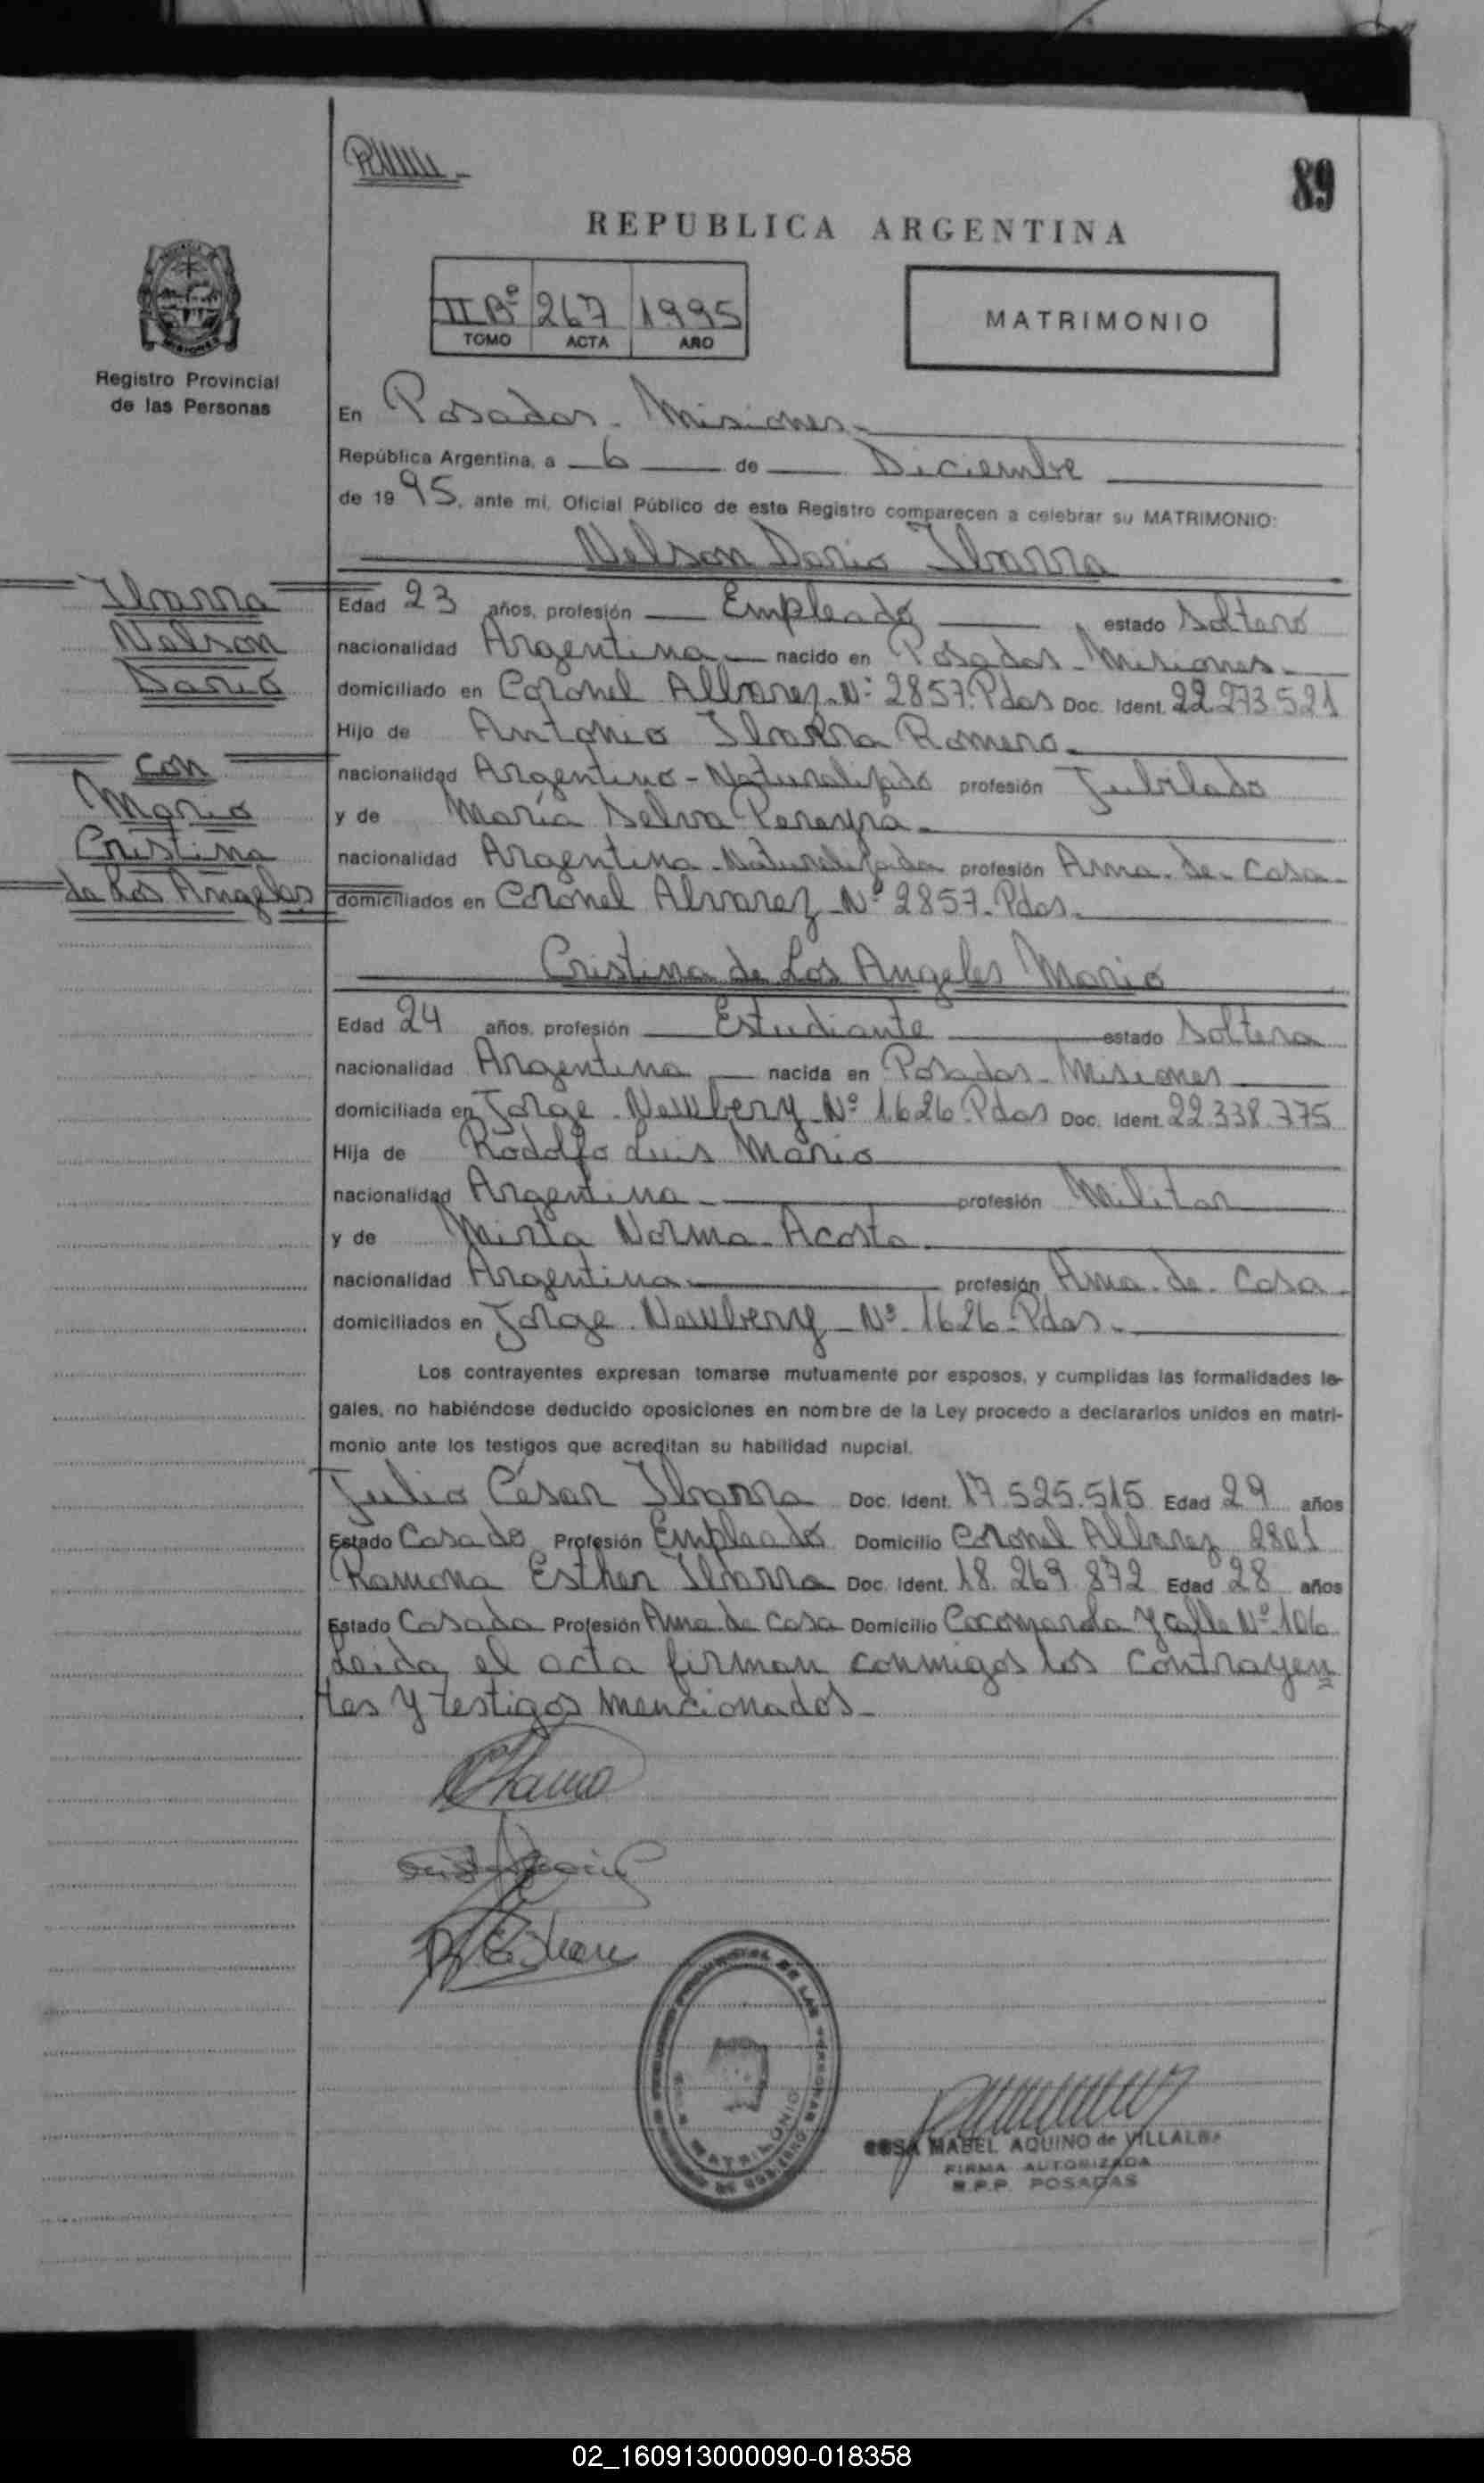 89
REPUBLICA ARGENTINA
II Bº 267 1995
TOMO ACTA AÑO
MATRIMONIO
Registro Provincial
de las Personas
En Posadas - Misiones -
República Argentina, a 6 de Diciembre
de 1995, ante mí, Oficial Público de este Registro comparecen a celebrar su MATRIMONIO:
Nelson Dario Ibarra
Ibarra
Nelson
Dario
con
Mario
Cristina
de Los Angeles
Edad 23 años, profesión Empleado estado Soltero
nacionalidad Argentina nacido en Posadas - Misiones -
domiciliado en Coronel Allvarez - Nº 2857. Pdas Doc. Ident. 22.273.521
Hijo de Antonio Ibarra Romero -
nacionalidad Argentino - Naturalizado profesión Jubilado
y de María Selva Pereyra -
nacionalidad Argentina - Naturalizada profesión Ama - de - Casa -
domiciliados en Coronel Alvarez - Nº 2857 - Pdas -
Cristina de Los Angeles Mario
Edad 24 años, profesión Estudiante estado Soltera
nacionalidad Argentina nacida en Posadas - Misiones
domiciliada en Jorge - Newbery - Nº 1626 - Pdas Doc. Ident. 22.338.775
Hija de Rodolfo Luis Mario
nacionalidad Argentina - profesión Militar
y de Mirta Norma - Acosta -
nacionalidad Argentina profesión Ama - de - Casa -
domiciliados en Jorge - Newbery - Nº - 1626 - Pdas -
Los contrayentes expresan tomarse mutuamente por esposos, y cumplidas las formalidades le-
gales, no habiéndose deducido oposiciones en nombre de la Ley procedo a declararlos unidos en matri-
monio ante los testigos que acreditan su habilidad nupcial.
Julio César Ibarra Doc. Ident. 17.525.515 Edad 29 años
Estado Casado Profesión Empleado Domicilio Coronel Allvarez 2801
Ramona Esther Ibarra Doc. Ident. 18.269.872 Edad 28 años
Estado Casada Profesión Ama de Casa Domicilio Cocomarola y calle Nº 106
Leida el acta firman conmigos los contrayen
tes y testigos mencionados -
MATRIMONIO
ROSA MABEL AQUINO de VILLALBA
FIRMA AUTORIZADA
R.P.P. POSADAS
02_160913000090-018358